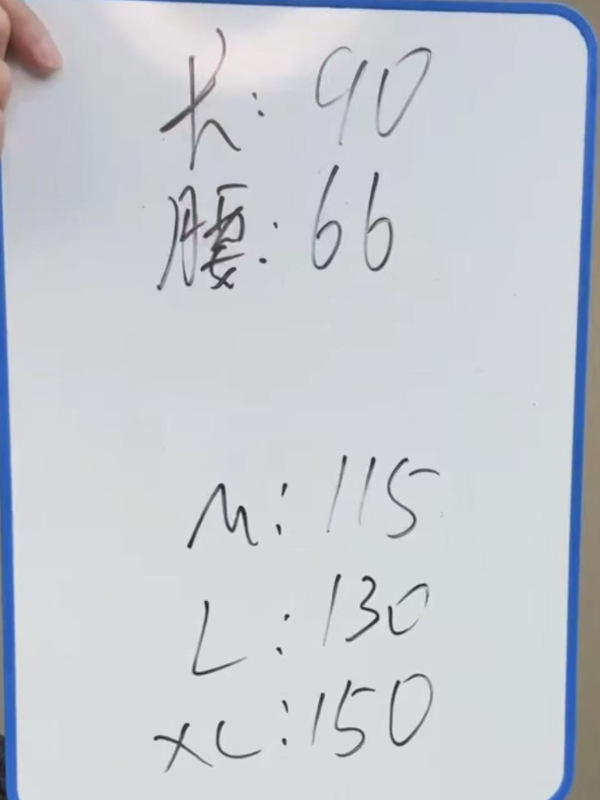 长: 90
腰: 66
M: 115
L: 130
XL: 150